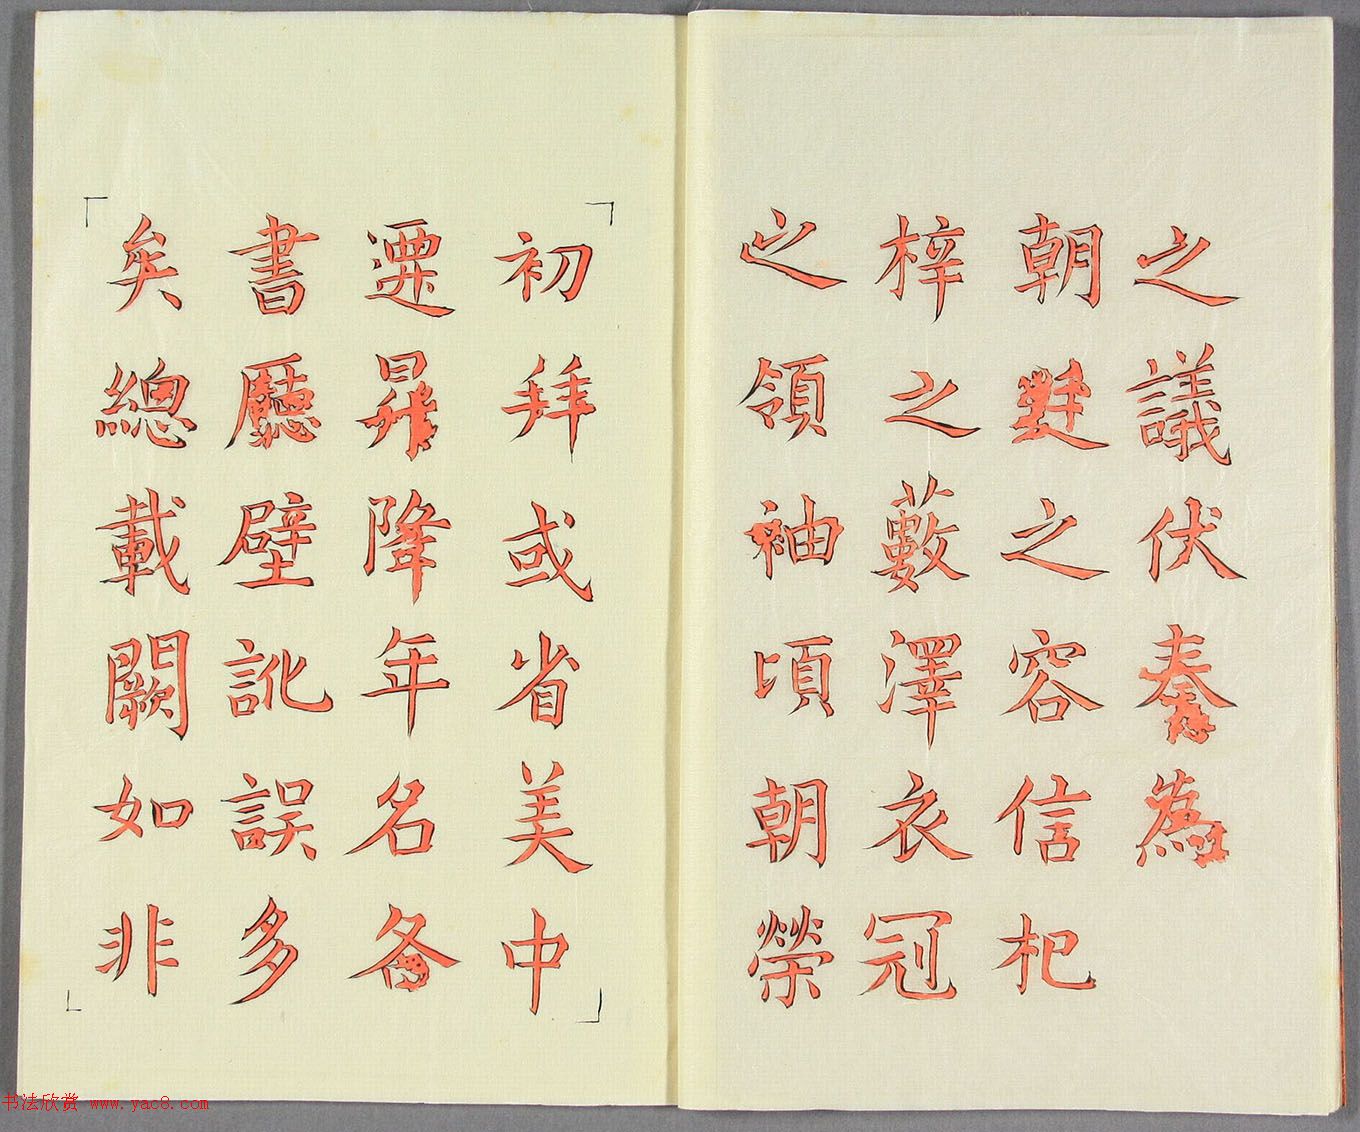 之議伏奏為
朝廷之容信杞
梓之藪澤衣冠
之領袖頃朝榮
初拜或省美中
遷昇降年名各
書廳壁訛誤多
矣總載闕如非
书法欣赏 www.yac8.com